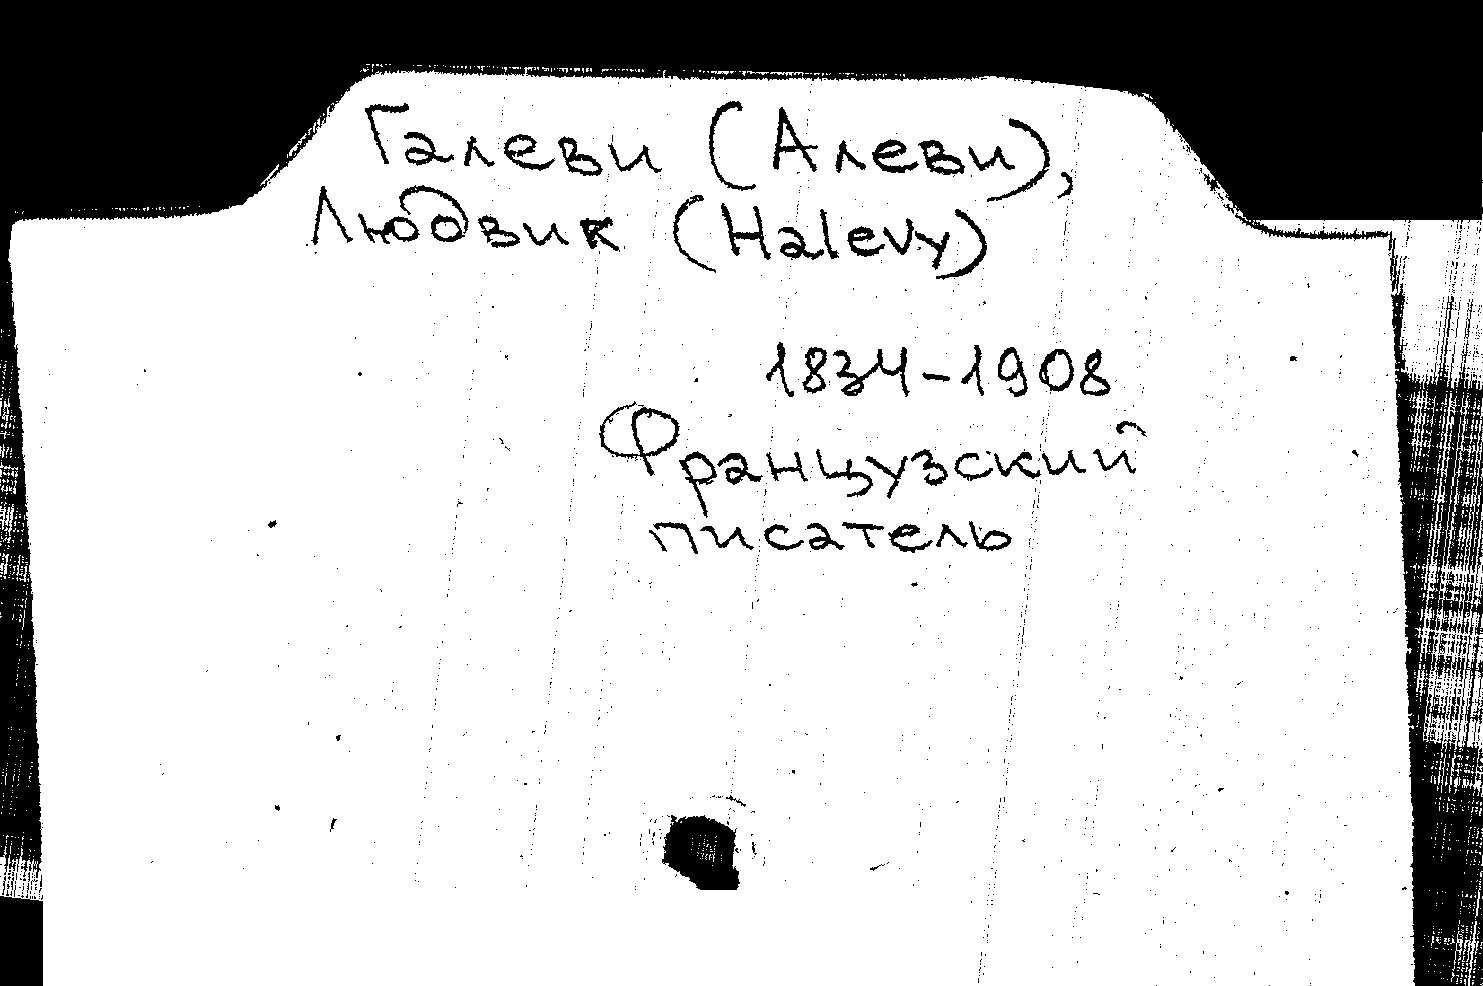 Галеви (Алеви),
Людвик (Halevy)
1834-1908
Французский
писатель